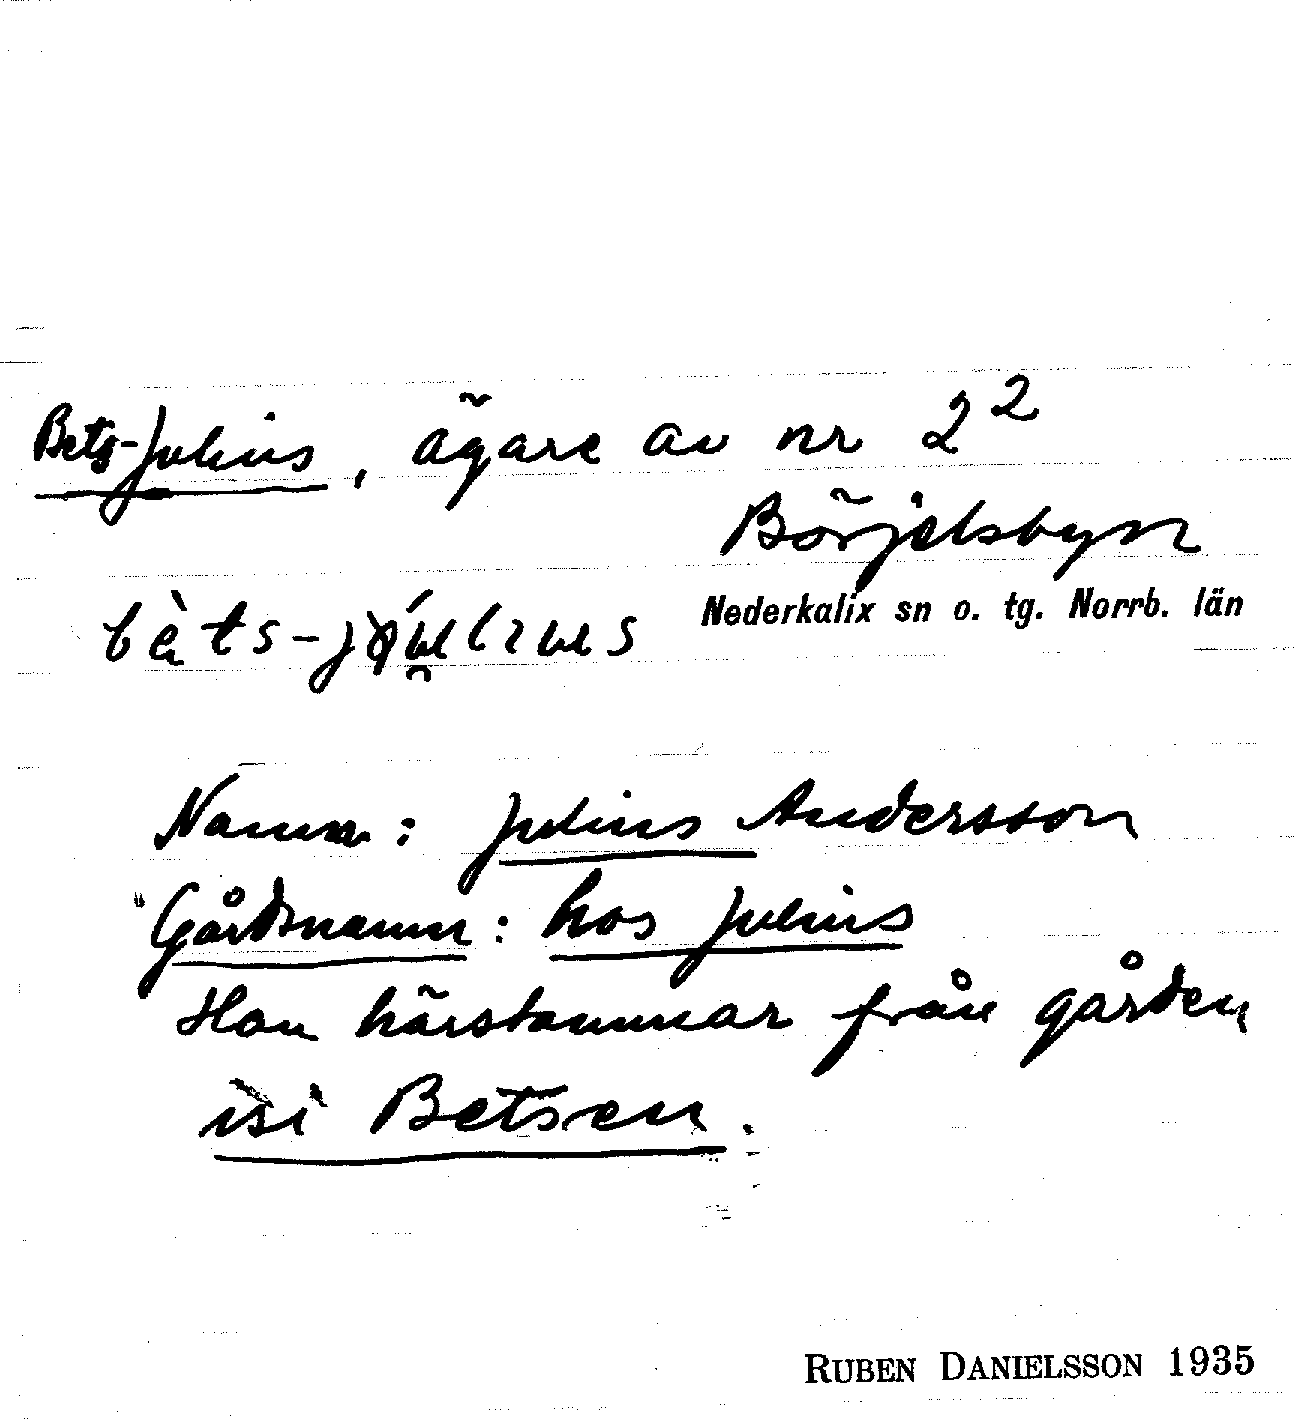 Bets-Julius, ägare av nr 2²
Börjelsbyn
Nederkalix sn o. tg. Norrb. län
Namn: Julius Andersson
Gårdsnamn: hos Julius
Han härstammar från gården
isi Betsen.
RUBEN DANIELSSON 1935